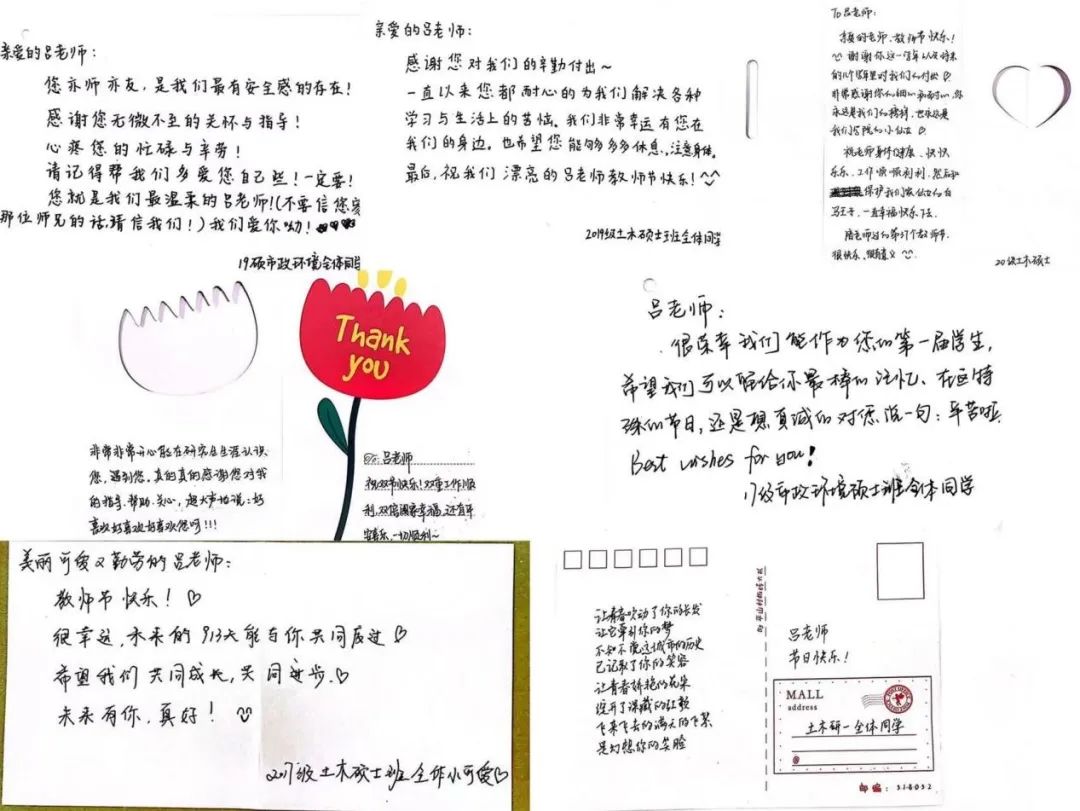 亲爱的吕老师：
您亦师亦友，是我们最有安全感的存在！
感谢您无微不至的关怀与指导！
心疼您的忙碌与辛劳！
请记得帮我们多爱您自己些！一定要！
您就是我们最温柔的吕老师！（不要信您家
那位师兄的话，请信我们！）我们爱你呦！
19硕市政环境全体同学
亲爱的吕老师：
感谢您对我们的辛勤付出～
一直以来您都耐心的为我们解决各种
学习与生活上的苦恼。我们非常幸运有您在
我们的身边。也希望您能够多多休息，注意身体。
最后，祝我们漂亮的吕老师教师节快乐！
2019级土木硕士班全体同学
To 吕老师：
亲爱的老师，教师节快乐！
谢谢你这一年以及将来
的几个年里对我们的付出
非常感谢你的细心和耐心，你
永远是我们的榜样，也永远是
我们学院的小仙女
祝老师身体健康、快快
乐乐、工作顺顺利利，然后和
保护我们家仙女的白
马王子，一直幸福快乐下去。
陪老师过的第37个教师节，
很快乐，很有意义
20级土木硕士
Thank
you
非常非常开心能在研究生生涯认识
您，遇到您。真的真的感谢您对我
的指导、帮助、关心，超大声地说：好
喜欢好喜欢好喜欢您呀！！！
To：吕老师
祝双节快乐！双重工作顺
利，双倍阖家幸福，还有平
安喜乐，一切顺利～
吕老师：
很荣幸我们能作为您的第一届学生，
希望我们可以留给你最棒的记忆、在这特
殊的节日，还是想真诚的对您说一句：辛苦啦
Best wishes for you!
17级市政环境硕士班全体同学
美丽可爱又勤劳的吕老师：
教师节快乐！
很幸运，未来的913天能与你共同度过
希望我们共同成长，共同进步
未来有你，真好！
2017级土木硕士班全体小可爱
让青春吹动了你的长发
让它牵引你的梦
不知不觉这城市的历史
已记取了你的笑容
让青春娇艳的花朵
绽开了深藏的红颜
飞来飞去的满天的飞絮
是幻想你的笑脸
吕老师
节日快乐！
MALL
address
土木研一全体同学
邮编：518052